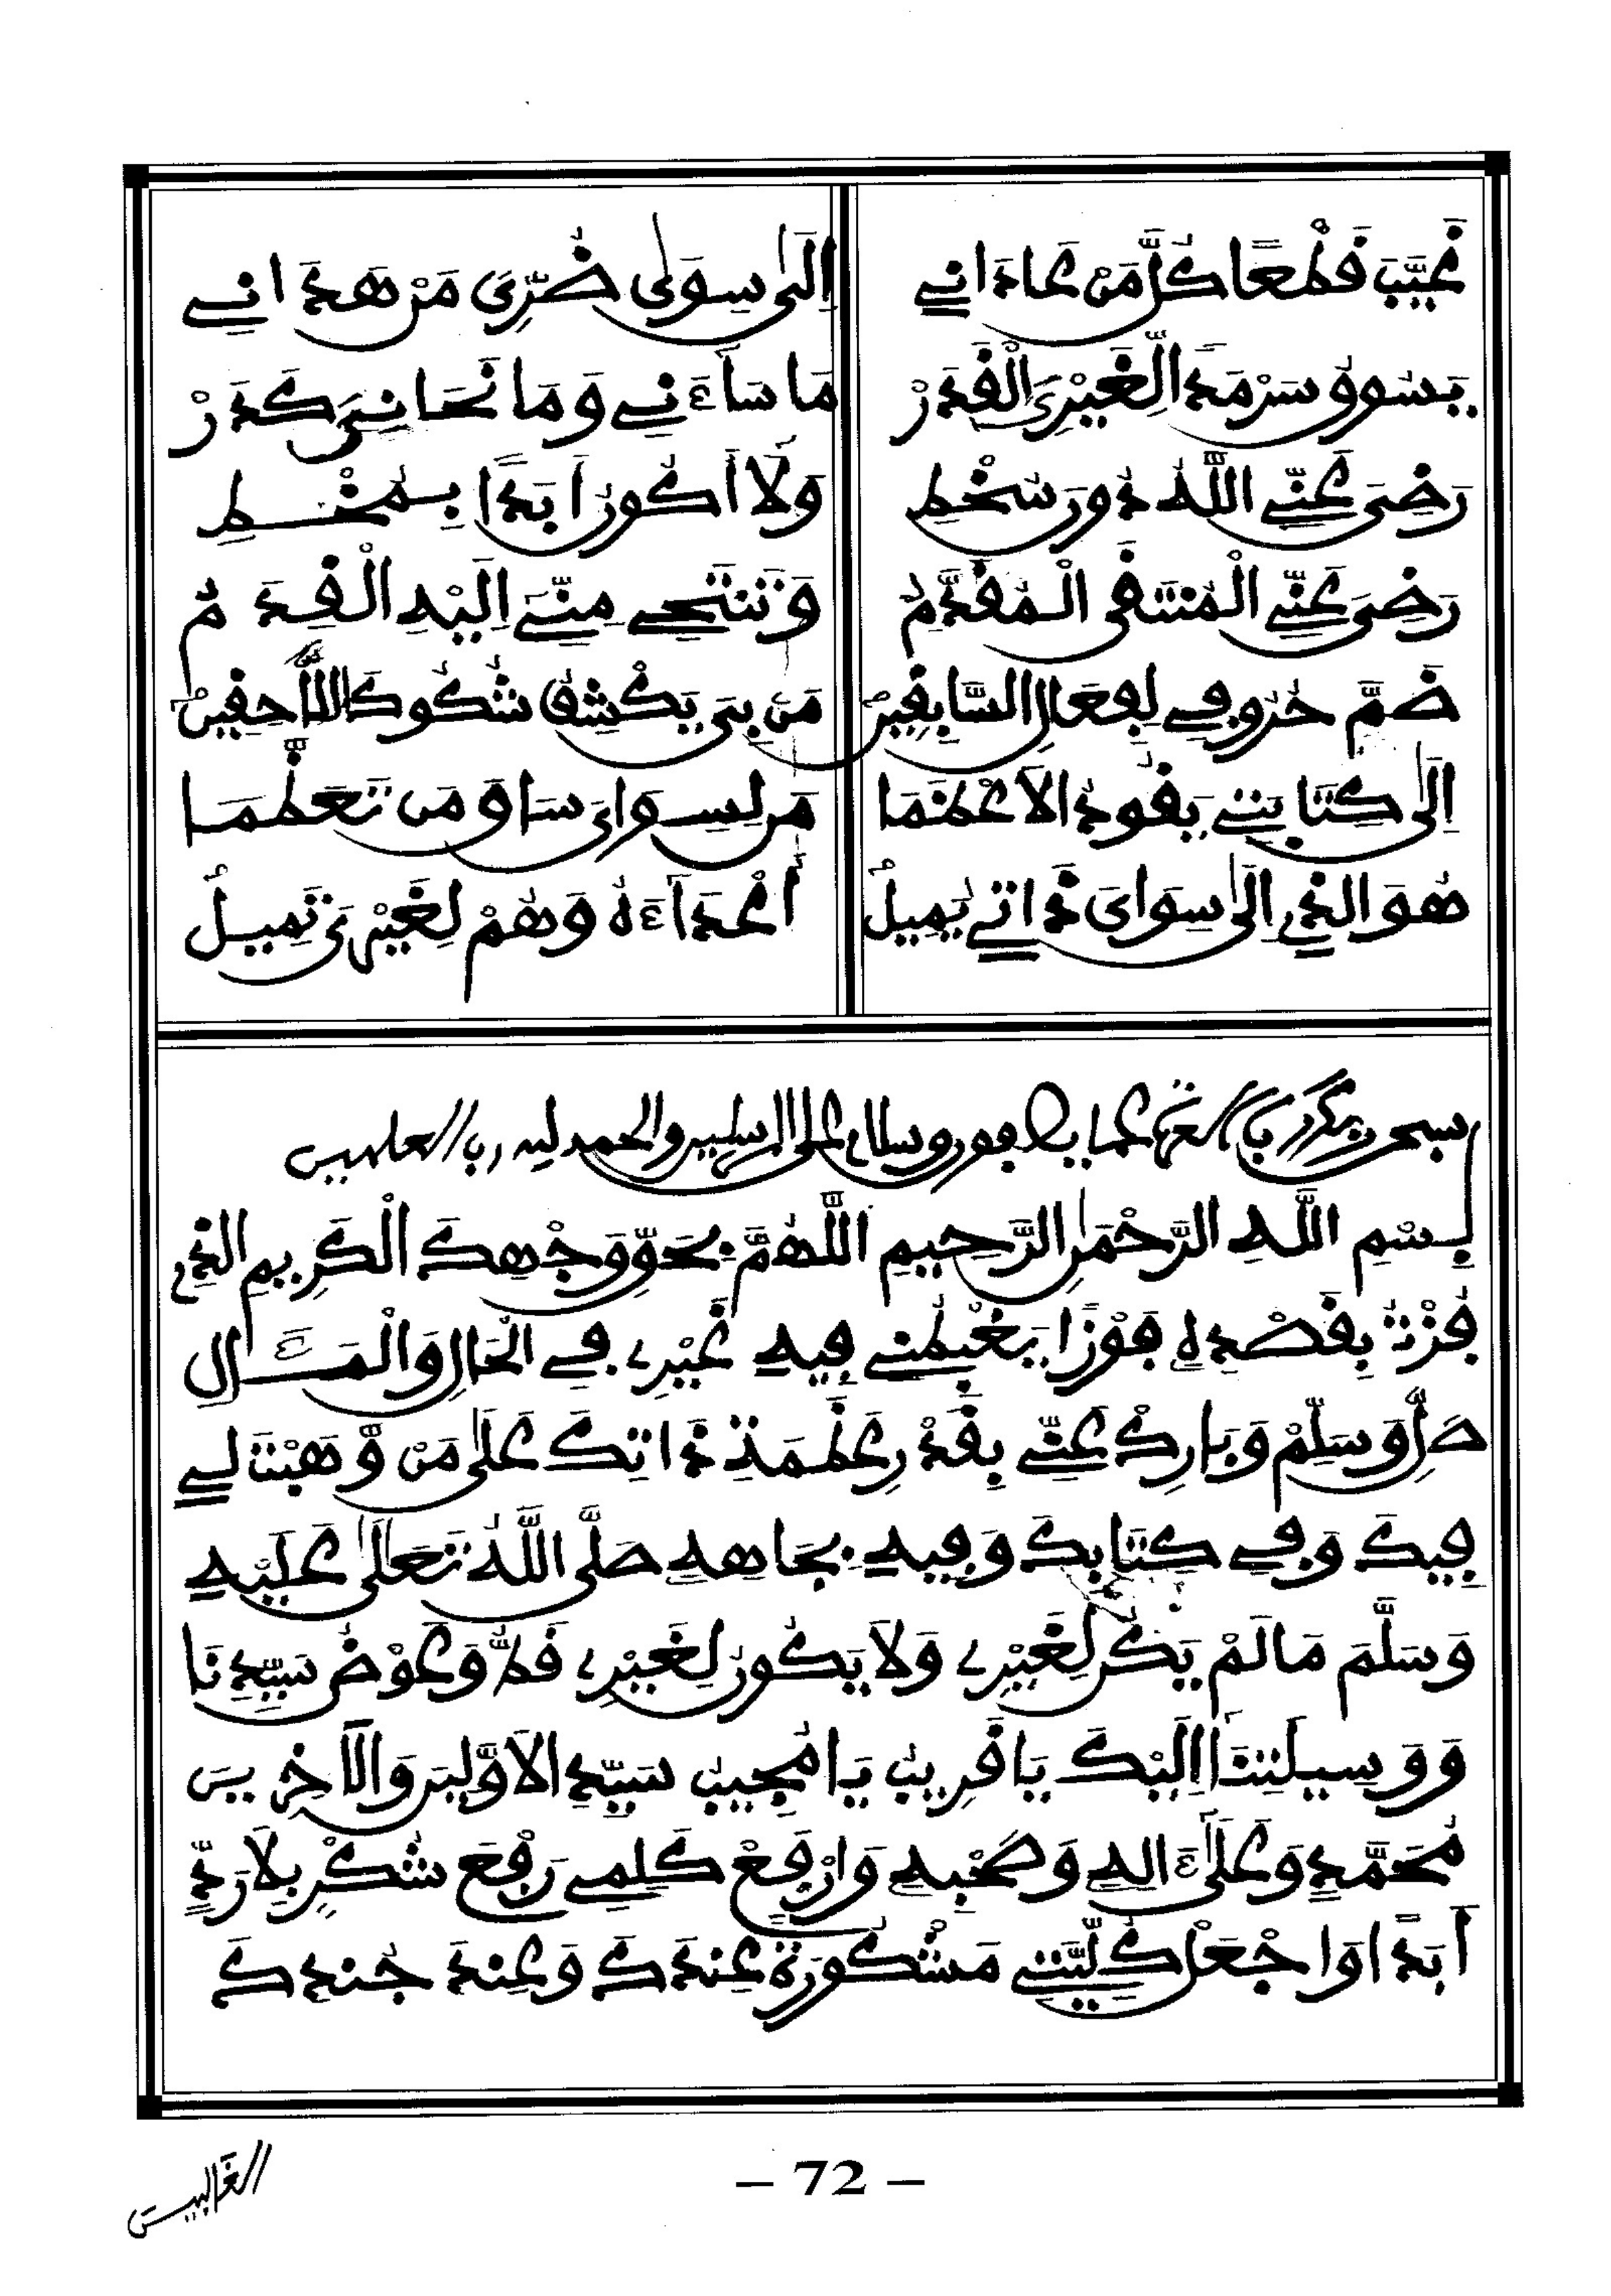 غَيَّبَ قَطْعًا كُلَّ مَنْ عَادَانِي إِلَىٰ سِوَىٰ ضُرِّيَ مَنْ هَدَانِي
يَسُوقُ سَرْمَدًا لِغَيْرِيَ الْقَدَرْ مَا سَاءَنِي وَمَا نَحَانِيَ كَدَرْ
رَضِيَ عَنِّي اللَّهُ دُونَ سُخْطِ وَلَا أَكُونُ أَبَدًا بِمُسْخِطِ
رَضِيَ عَنِّي الْمُنْتَقَى الْمُقَدَّمُ وَتَنْتَحِي مِنِّي إِلَيْهِ الْقِدَمُ
ضَمَّ حُرُوفِي لِفِعَالِ السَّابِقِينْ مَنْ بِيَ يَكْشِفُ شُكُوكَ اللَّاحِقِينْ
إِلَىٰ كِتَابَتِي يَقُودُ الْأَعْظَمَا مَنْ لِسِوَايَ سَاقَ مَنْ تَعَظَّمَا
هُوَ الَّذِي إِلَىٰ سِوَايَ ذَاتِي يُمِيلُ أَعْدَاءَهُ وَهُمْ لِغَيْرِي تَمِيلُ
سبحن ربك رب العزة عما يصفون وسلم على المرسلين والحمد لله رب العلمين
بِسْمِ اللَّهِ الرَّحْمَٰنِ الرَّحِيمِ اللَّهُمَّ بِحَقِّ وَجْهِكَ الْكَرِيمِ الَّذِي
فُزْتُ بِقَصْدِهِ فَوْزًا يَغْبِطُنِي فِيهِ غَيْرِي فِي الْحَالِ وَالْمَآلِ
صَلِّ وَسَلِّمْ وَبَارِكْ عَنِّي بِقَدْرِ عَظَمَةِ ذَاتِكَ عَلَىٰ مَنْ وَّهَبْتَ لِي
فِيكَ وَفِي كِتَابِكَ وَفِيهِ بِجَاهِهِ صَلَّى اللَّهُ تَعَالَىٰ عَلَيْهِ
وَسَلَّمَ مَا لَمْ يَكُنْ لِغَيْرِي وَلَا يَكُونُ لِغَيْرِي قَطُّ وَعَوْضُ سَيِّدِنَا
وَوَسِيلَتِنَا إِلَيْكَ يَا قَرِيبُ يَا مُجِيبُ سَيِّدِ الْأَوَّلِينَ وَالْآخِرِينَ
مُحَمَّدٍ وَعَلَىٰ ءَالِهِ وَصَحْبِهِ وَارْفَعْ كَلِمِي رَفْعَ شُكْرٍ بِلَا رَدٍّ
أَبَدًا وَاجْعَلْ كُلِّيَّتِي مَشْكُورَةً عِنْدَكَ وَعِنْدَ جُنْدِكَ
– 72 –